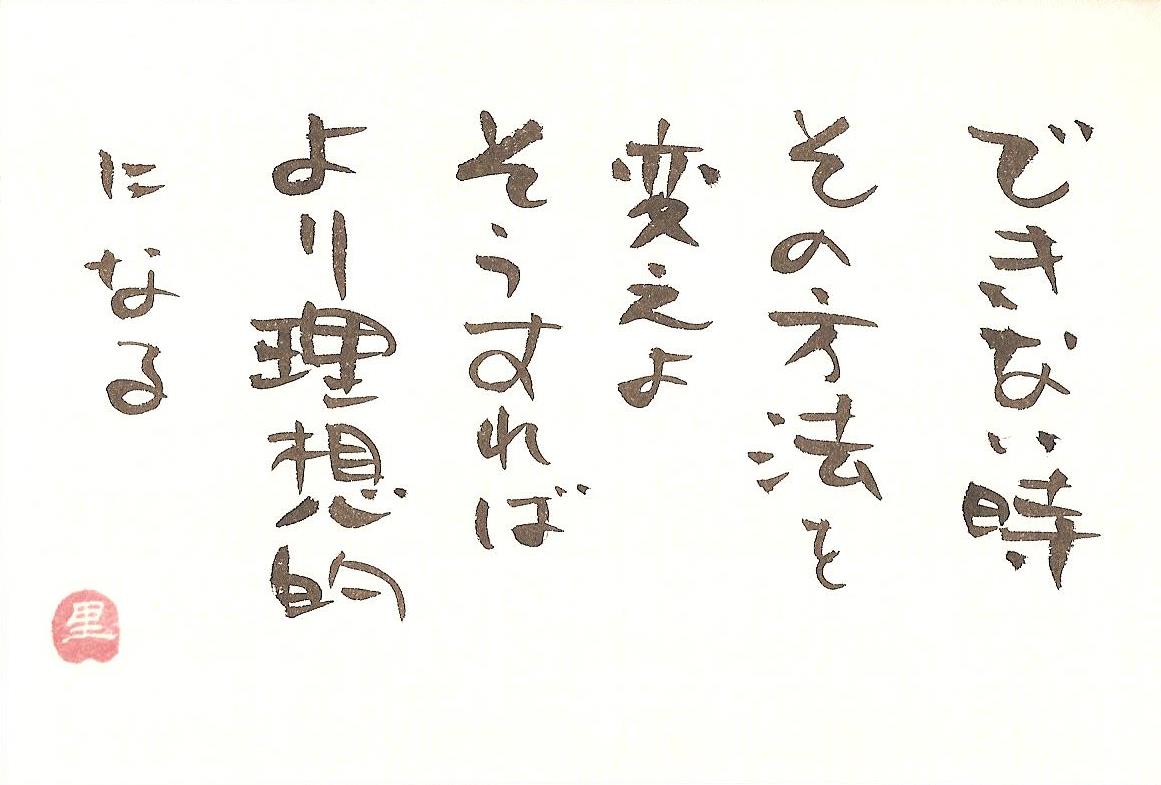 できない時
その方法を
変えよ
そうすれば
より理想的
になる
里